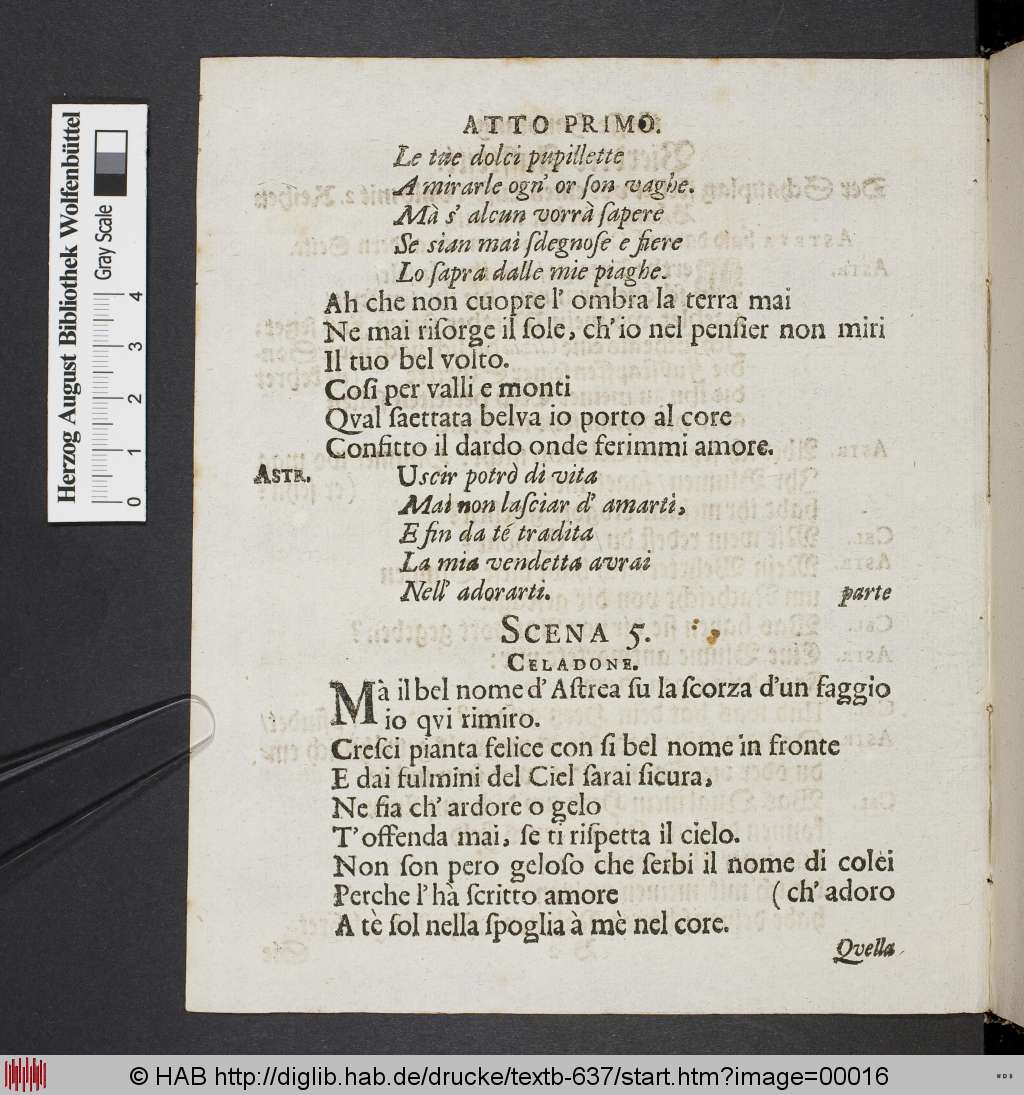 ATTO PRIMO.
Le tue dolci pupillette
A mirarle ogn' or ſon vaghe.
Mà s' alcun vorrà ſapere
Se sian mai ſdegnoſe e fiere
Lo ſapra dalle mie piaghe.
Ah che non cuopre l' ombra la terra mai
Ne mai riſorge il ſole, ch' io nel penſier non miri
Il tuo bel volto.
Coſi per valli e monti
Qval ſaettata belva io porto al core
Confitto il dardo onde ferimmi amore.
ASTR. Uscir potrò di vita
Mai non laſciar d' amarti,
E fin da té tradita
La mia vendetta avrai
Nell' adorarti. parte
SCENA 5.
CELADONE.
Mà il bel nome d' Aſtrea ſu la ſcorza d'un faggio
io qvi rimiro.
Creſci pianta felice con ſi bel nome in fronte
E dai fulmini del Ciel ſarai ſicura,
Ne fia ch' ardore o gelo
T' offenda mai, ſe ti riſpetta il cielo.
Non ſon pero geloſo che ſerbi il nome di colei
Perche l' hà ſcritto amore ( ch' adoro
A tè ſol nella ſpoglia à mè nel core.
Qvella
Herzog August Bibliothek Wolfenbüttel
Gray Scale
0 1 2 3 4
© HAB http://diglib.hab.de/drucke/textb-637/start.htm?image=00016
WDB